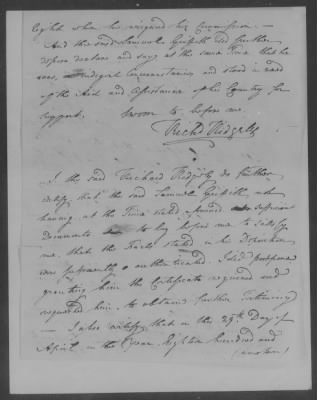 Eight when he resigned his Commission. —
And the said Samuel Griffith did further
depose declare and say at the same Time that he
was, in indigent Circumstances and stood in need
of the Aid and Assistance of his Country for
Support. Sworn to before me
Richd Ridgely
I the said Richard Ridgely do further
certify that the said Samuel Griffith not
having at the Time stated produced sufficient
Documents to lay before me to satisfy
me, that the Facts stated in his Deposition
were sufficiently authenticated. I did postpone
granting him the Certificate required and
requested him to obtain further Testimony
— I also certify that on the 29th Day of
April in the Year Eighteen hundred and